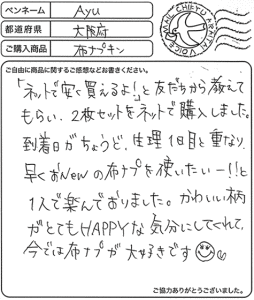 ペンネーム Ayu
都道府県 大阪府
ご購入商品 布ナプキン
ご自由に商品に関するご感想などお書きください。
「ネットで安く買えるよ!」と友だちから教えて
もらい、2枚セットをネットで購入しました。
到着日がちょうど、生理1日目と重なり、
早くおNewの布ナプを使いたいー!!と
1人で楽んでおりました。かわいい柄
がとてもHAPPYな気分にしてくれて、
今では布ナプが大好きです
ご協力ありがとうございました。